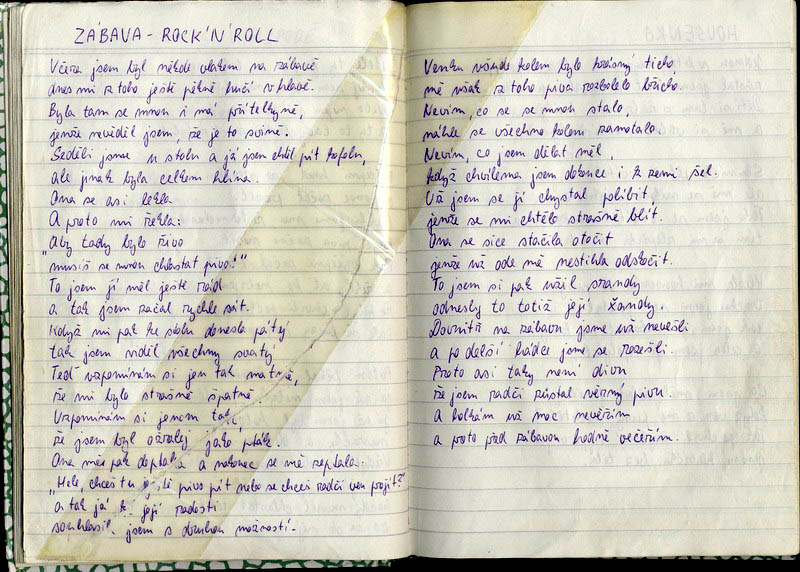 ZÁBAVA - ROCK'N'ROLL
Včera jsem byl někde vlakem na zábavě
dnes mi z toho ještě pěkně hučí v hlavě.
Byla tam se mnou i má přítelkyně,
jenže nevěděl jsem, že je to svině.
Seděli jsme u stolu a já jsem chtěl pít kofolu,
ale jinak byla celkem hlína.
Ona se asi lekla
A proto mi řekla:
"Aby tady bylo živo
musíš se mnou chlastat pivo!"
To jsem jí měl ještě raid
a tak jsem začal rychle sát.
Když mi pak ke stolu donesla pátý
tak jsem viděl všechny svatý
Teď vzpomínám si jen tak matně,
že mi bylo strašně špatně
Vzpomínám si jenom tak,
že jsem byl ožralej jako pták.
Ona mě pak doptala a nakonec se mě zeptala:
"Hele, chceš tu ještě pivo pít nebo se chceš radči ven projít?"
a tak já k její radosti
souhlasil jsem s druhou možností.
Venku všude kolem bylo krásný ticho,
mě však z toho piva rozbolelo břicho.
Nevím, co se se mnou stalo,
náhle se všechno kolem zamotalo.
Nevím, co jsem dělat měl,
když chvilema jsem dokonce i k zemi šel.
Už jsem se jí chystal políbit,
jenže se mi chtělo strašně blít.
Ona se sice stačila otočit
jenže už ode mě nestihla odskočit.
To jsem si pak užil srandy
odnesly to totiž její žandy.
Dovnitř na zábavu jsme už nevešli
a po delší hádce jsme se rozešli.
Proto asi taky není divu
že jsem radči zůstal věrný pivu.
a holkám už moc nevěřím
a proto před zábavou hodně večeřím.
HOUSENKA